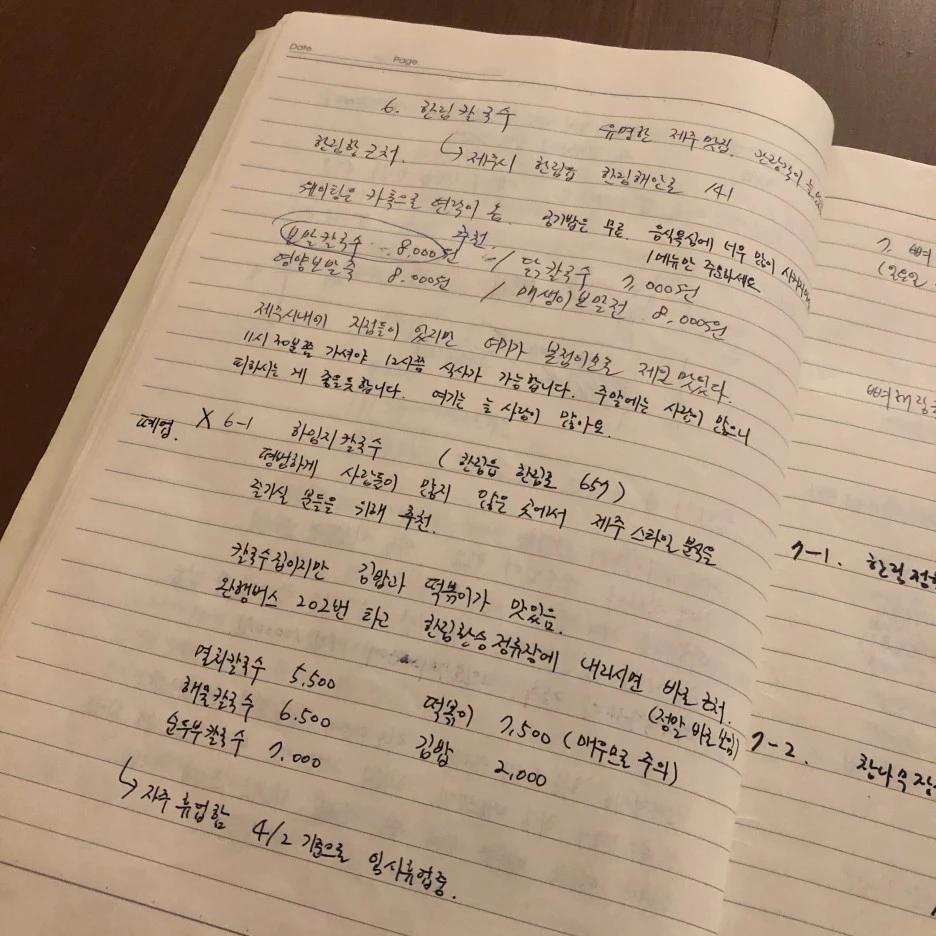 Date
Page
6. 한림칼국수 유명한 제주 맛집. 관광객이 늘
한림항 근처. ↳ 제주시 한림읍 한림해안로 141
웨이팅은 카톡으로 연락이 옴. 공기밥은 무료. 음식욕심에 너무 많이 시키지
추천. 1메뉴만 주문하세요
보말칼국수 8,000원 / 닭칼국수 7,000원
영양보말죽 8.000원 / 매생이보말전 8,000원
제주시내에 지점들이 있지만 여기가 본점이므로 제일 맛있다.
11시 30분쯤 가셔야 12시쯤 식사가 가능합니다. 주말에는 사람이 많으니
피하시는 게 좋을듯합니다. 여기는 늘 사람이 많아요.
폐업. X 6-1 하임지칼국수 (한림읍 한림로 657)
평범하게 사람들이 많지 않은 곳에서 제주 스타일 분식을
즐기실 분들을 위해 추천.
칼국수집이지만 김밥과 떡볶이가 맛있음.
완행버스 202번 타고 한림환승정류장에 내리시면 바로 근처.
(정말 바로 보임)
멸치칼국수 5,500 떡볶이 7,500 (매우므로 주의)
해물칼국수 6.500 김밥 2,000
순두부칼국수 7.000
↳ 자주 휴업함 4/2 기준으로 임시휴업중.
7. 뼈
(일요일
뼈해장국
7-1. 한림
7-2.